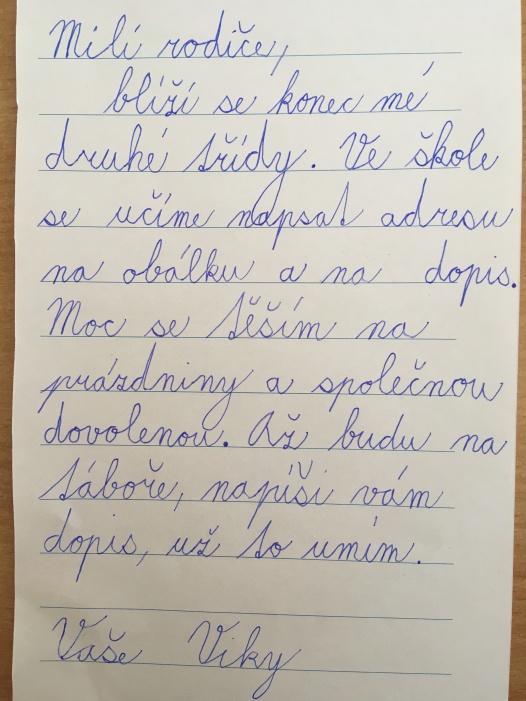 Milí rodiče,
blíží se konec mé
druhé třídy. Ve škole
se učíme napsat adresu
na obálku a na dopis.
Moc se těším na
prázdniny a společnou
dovolenou. Až budu na
táboře, napíši vám
dopis, už to umím.
Vaše Viky